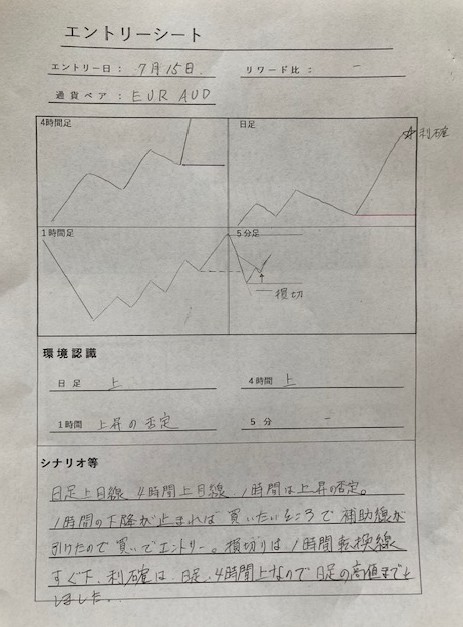 エントリーシート
エントリー日： 7月15日.
リワード比： －
通貨ペア： EUR AUD
4時間足
日足
利確
1時間足
5分足
損切
環境認識
日足 上
4時間 上
1時間 上昇の否定
5分 －
シナリオ等
日足上目線 4時間上目線 1時間は上昇の否定。
1時間の下降が止まれば買いたいところで補助線が
引けたので買いでエントリー。損切りは1時間転換線
すぐ下、利確は、日足、4時間上なので日足の高値までと
しました。